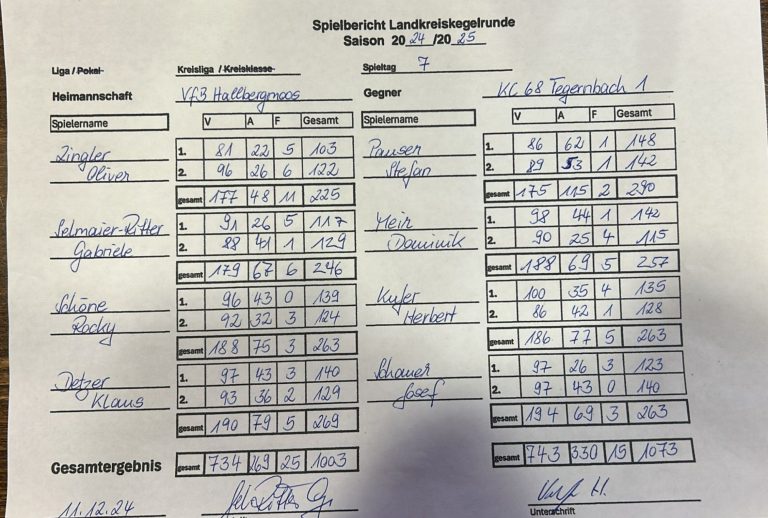 Spielbericht Landkreiskegelrunde
Saison 2024/2025
Liga / Pokal Kreisliga / Kreisklasse Spieltag 7
Heimannschaft VfB Hallbergmoos Gegner KC 68 Tegernbach 1
Spielername V A F Gesamt Spielername V A F Gesamt
Zingler 1. 81 22 5 103 Pauser 1. 86 62 1 148
Oliver 2. 96 26 6 122 Stefan 2. 89 53 1 142
gesamt 177 48 11 225 gesamt 175 115 2 290
Selmaier-Ritter 1. 91 26 5 117 Meir 1. 98 44 1 142
Gabriele 2. 88 41 1 129 Dominik 2. 90 25 4 115
gesamt 179 67 6 246 gesamt 188 69 5 257
Schöne 1. 96 43 0 139 Kufer 1. 100 35 4 135
Rocky 2. 92 32 3 124 Herbert 2. 86 42 1 128
gesamt 188 75 3 263 gesamt 186 77 5 263
Detzer 1. 97 43 3 140 Schauer 1. 97 26 3 123
Klaus 2. 93 36 2 129 Josef 2. 97 43 0 140
gesamt 190 79 5 269 gesamt 194 69 3 263
Gesamtergebnis gesamt 734 269 25 1003 gesamt 743 330 15 1073
11.12.24
Unterschrift